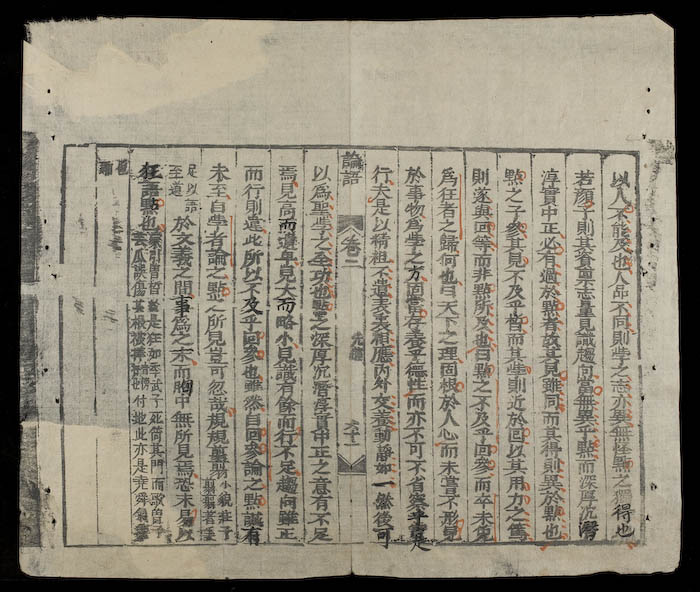 以人不能及也人品不同則學之志亦異無怪點之獨得也
若顔子則其資稟志量見識趨向當無異乎點而深厚沉潛
淳實中正必有過於點者故其見雖同而其得則異於點也
點之子參其見不及乎晳而其學則近於回以其用力之篤
則遂與回等而非點所及也曰點之不及乎回參而卒未免
爲狂者之歸何也曰天下之理固根於人心而未嘗不形見
於事物爲學之方固當存養乎德性而亦不可不省察乎實是
行夫是以精粗不遺表裏相應內外交養動靜如一然後可
論語 卷二 先進 六十二
以爲聖學之至功也點之深厚沉潛淳實中正之意有不足
焉見高而遺卑見大而略小見識有餘而行不足趨向雖正
而行則違此所以不及乎回參也雖然自回參論之點誠有
未至自學者論之點之所見豈可忽哉規規翦翦小貌莊子翦翦者
足以語至道於文義之間事爲之末而胸中無所見焉恐未易以
狂語點也 是狂如季武子死倚其門而歌曾子
芸瓜誤傷其根 此亦是堯舜氣象